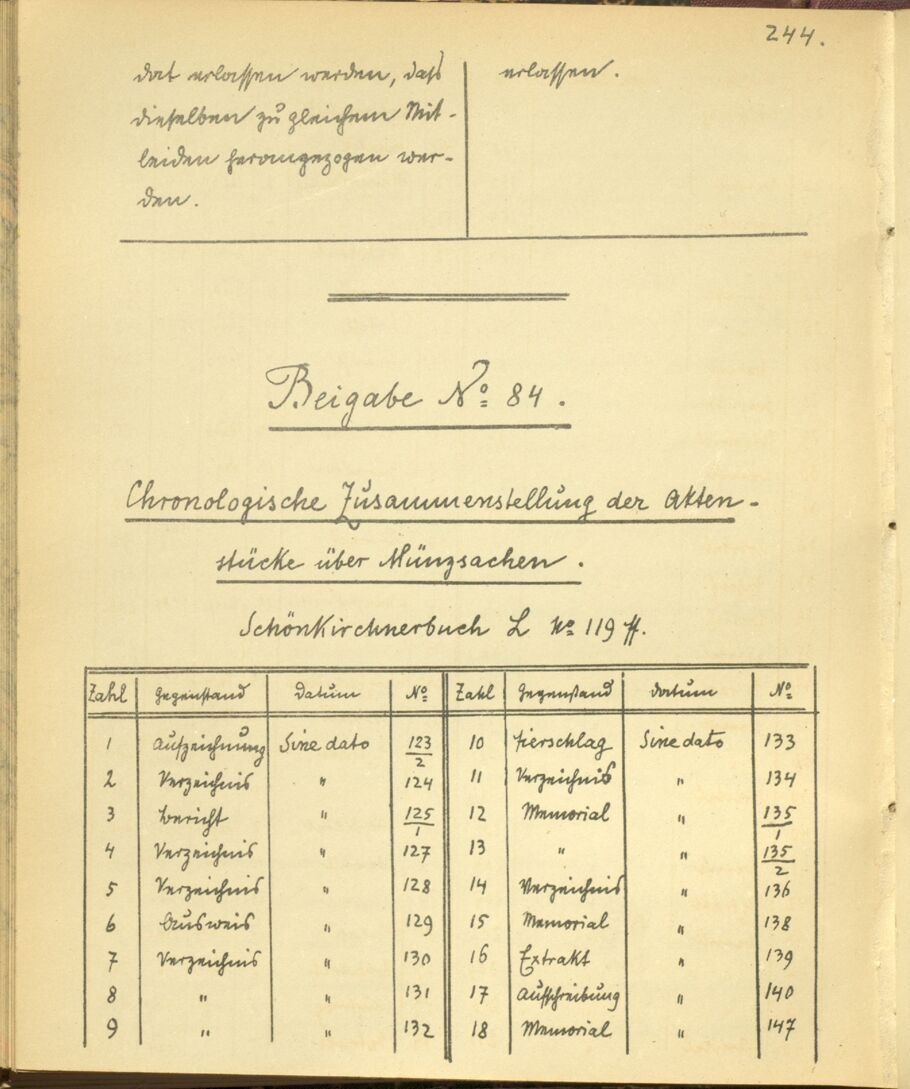 244.
dat erlassen werden, daß
dieselben zu gleichem Mit-
leiden herangezogen wer-
den.
erlassen.
Beigabe No 84.
Chronologische Zusammenstellung der Akten-
stücke über Münzsachen.
Schönkirchnerbuch L No 119 ff.
Zahl Gegenstand Datum No Zahl Gegenstand Datum No
1 Aufzeichnung Sine dato 123/2 10 Fierschlag Sine dato 133
2 Verzeichnis " 124 11 Verzeichnis " 134
3 Bericht " 125/1 12 Memorial " 135/1
4 Verzeichnis " 127 13 " " 135/2
5 Verzeichnis " 128 14 Verzeichnis " 136
6 Ausweis " 129 15 Memorial " 138
7 Verzeichnis " 130 16 Extrakt " 139
8 " " 131 17 Aufschreibung " 140
9 " " 132 18 Memorial " 147